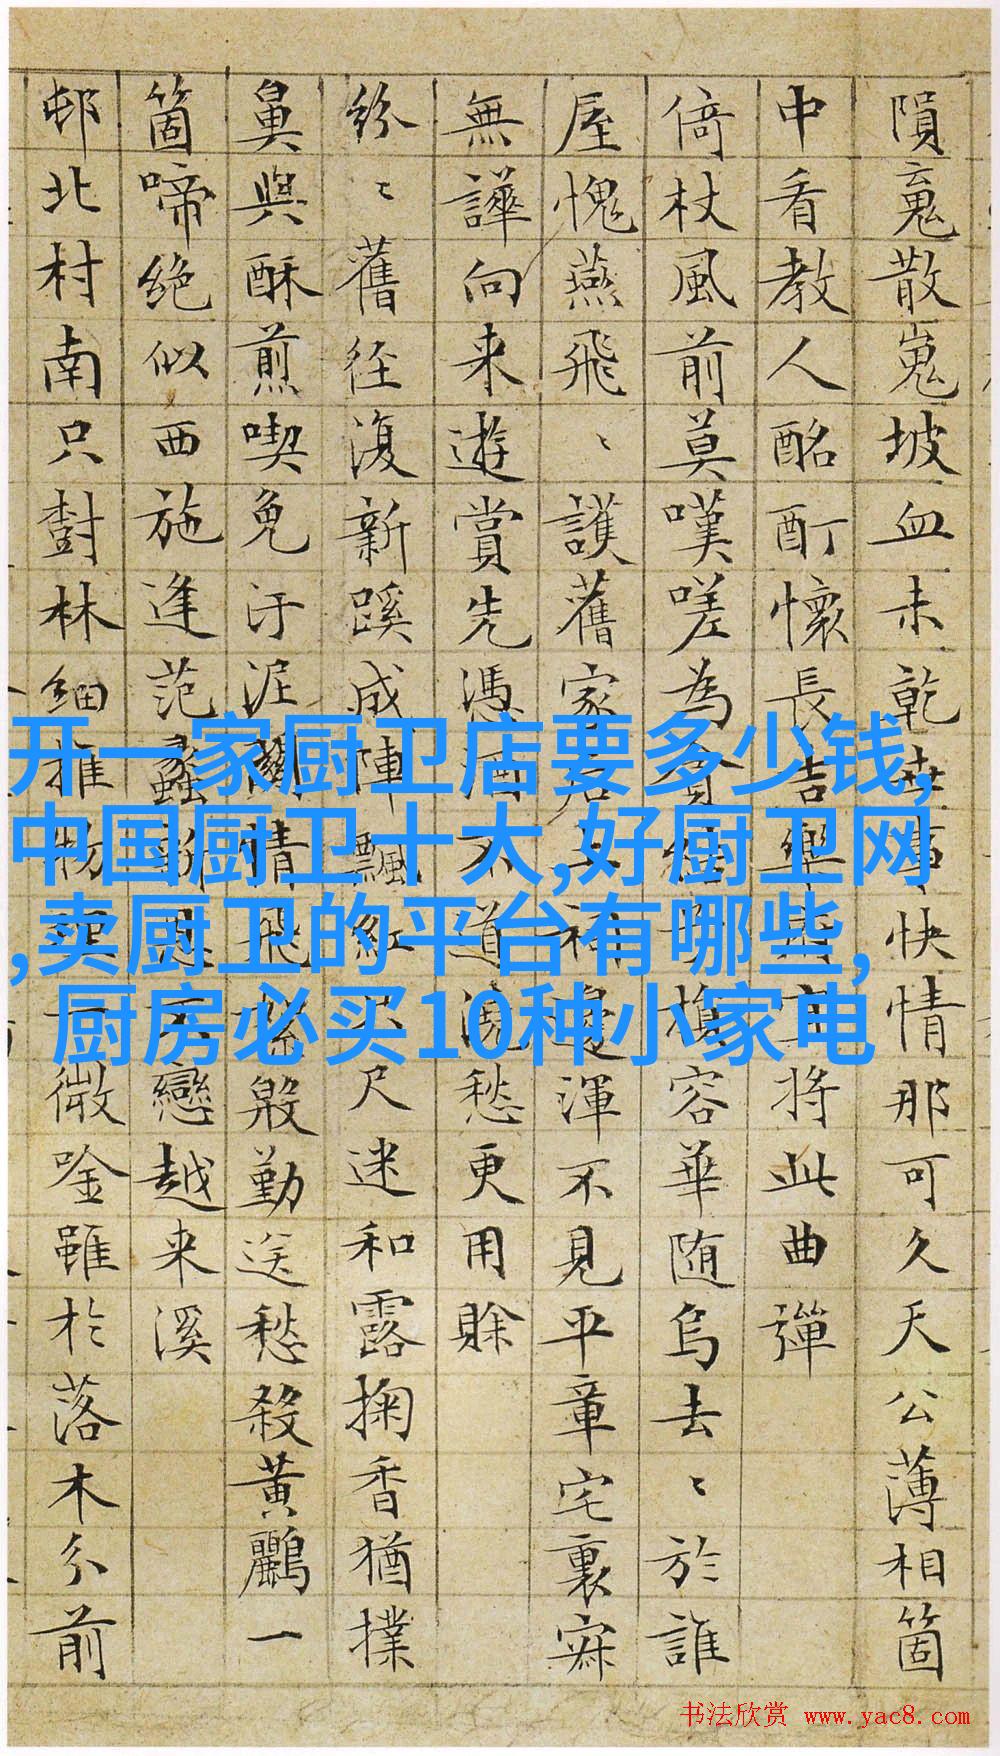 隕䰟散嵬坡血未乾世事快情那可久天公薄相箇
中看教人酩酊懷長吉樂將此曲彈
倚杖風前莫嘆嗟為貪損容華随烏去〻於誰
屋愧燕飛〻護舊家居士邊渾不見平章宅裏寐
無譁向来遊賞先憑酒不道澆愁更用賖
紛〻舊徑復新蹊成陣飄紅咫尺迷和露掬香猶撲
鼻與酥煎喫免汙泥情飛勤送愁殺黃鸝一
箇啼绝似西施逢范蠡戀越来溪
邨北村南只樹林細推物微唫雖於落木分前
开一家厨卫店要多少钱,
中国厨卫十大,好厨卫网
,卖厨卫的平台有哪些,
厨房必买10种小家电
书法欣赏 www.yac8.com